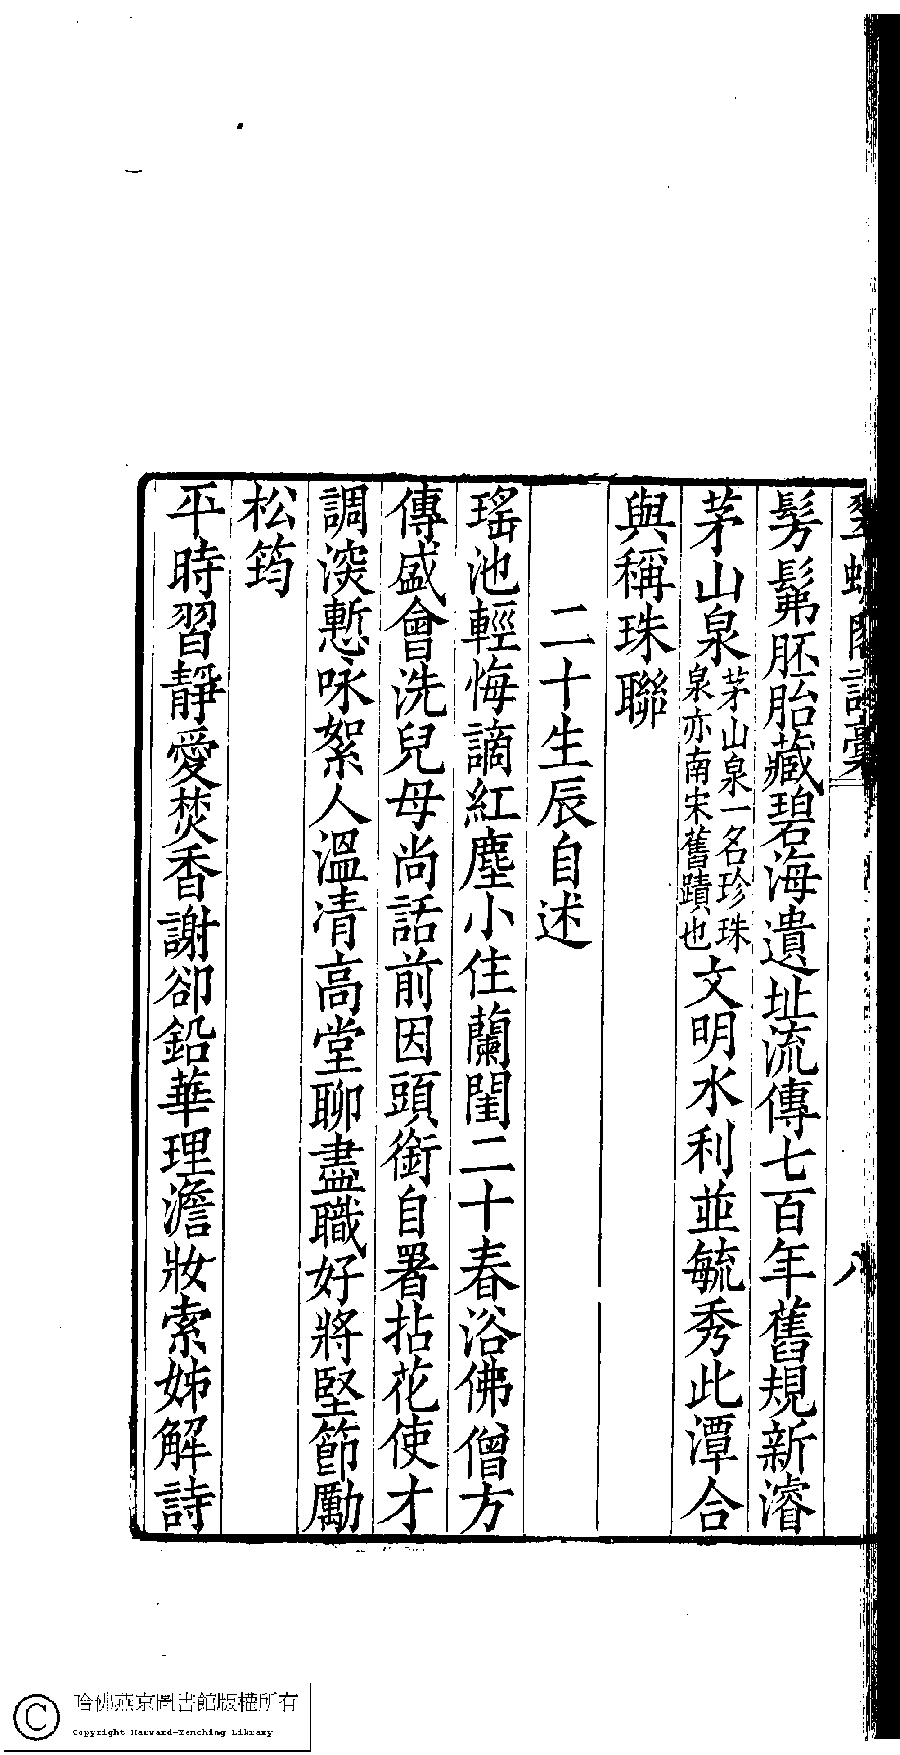 髣髴胚胎藏碧海遺址流傳七百年舊規新濬
茅山泉茅山泉一名珍珠泉亦南宋舊蹟也文明水利並毓秀此潭合
與稱珠聯
二十生辰自述
瑤池輕悔謫紅塵小住蘭閨二十春浴佛僧方
傳盛會洗兒母尚話前因頭銜自署拈花使才
調深慙咏絮人溫凊高堂聊盡職好將堅節勵
松筠
平時習靜愛焚香謝卻鉛華理澹妝索姊解詩
哈佛燕京圖書館版權所有
Copyright Harvard-Yenching Library